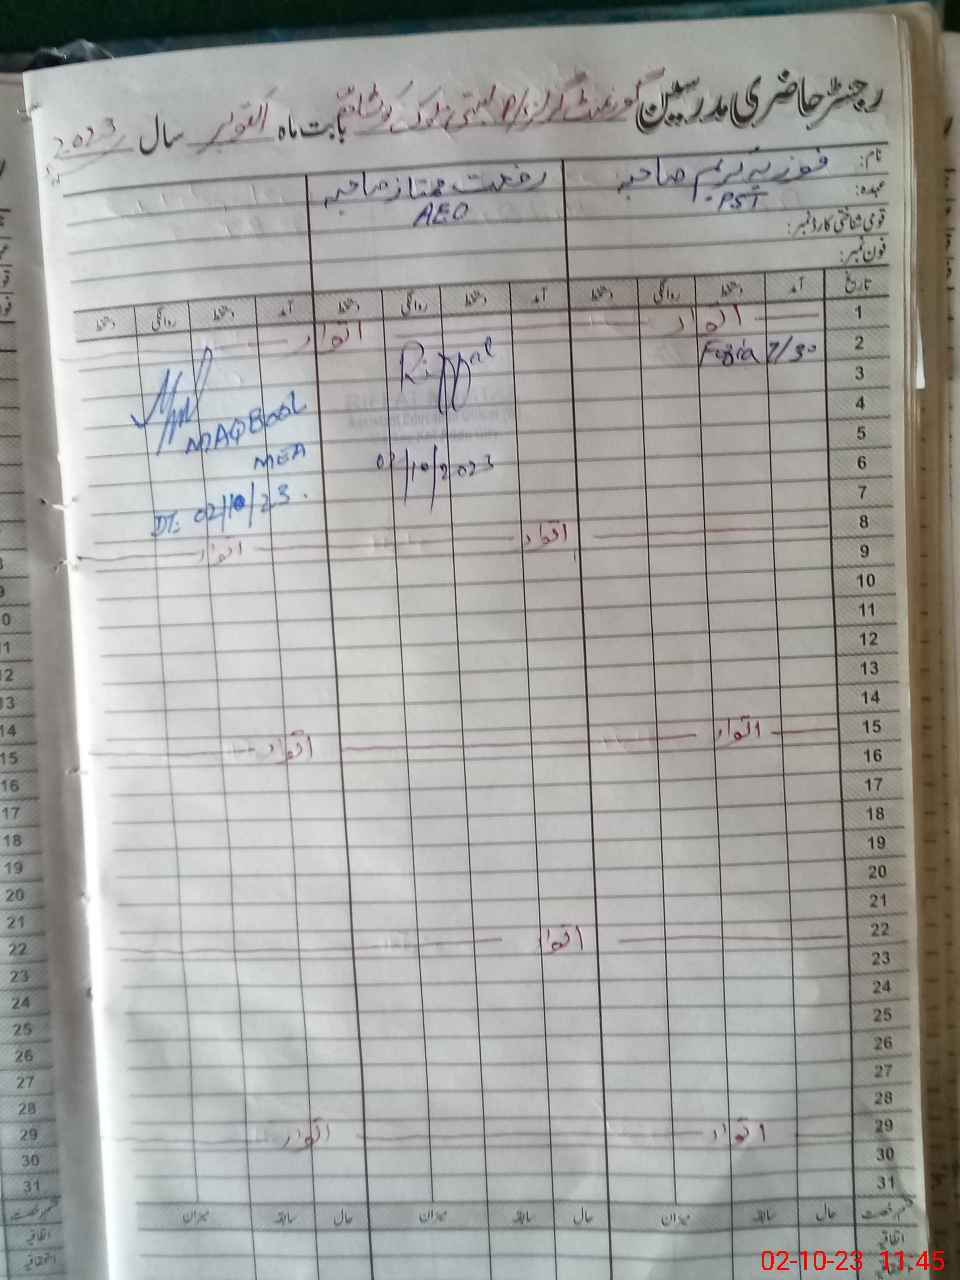 رجسٹر حاضری مدرسین گورنمنٹ گرلز بستی بابت ماہ اکتوبر سال 2023
نام: فوزیہ مریم صاحبہ رفعت ممتاز صاحبہ
عہدہ: PST AEO
قومی شناختی کارڈ نمبر:
فون نمبر:
تاریخ آمد دستخط روانگی دستخط آمد دستخط روانگی دستخط آمد دستخط روانگی دستخط
1 اتوار اتوار
2 Fozia 7/30
3
4
5
6
7
8 اتوار اتوار
9
10
11
12
13
14
15 اتوار اتوار
16
17
18
19
20
21
22 اتوار
23
24
25
26
27
28
29 اتوار اتوار
30
31
02/10/2023
MAQBOOL
MEA
DT: 02/10/23.
حال سابقہ میزان حال سابقہ میزان حال سابقہ میزان
اتفاقیہ
استحقاقیہ
14
15
16
17
18
19
20
21
22
23
24
25
26
27
28
29
30
31
02-10-23 11:45